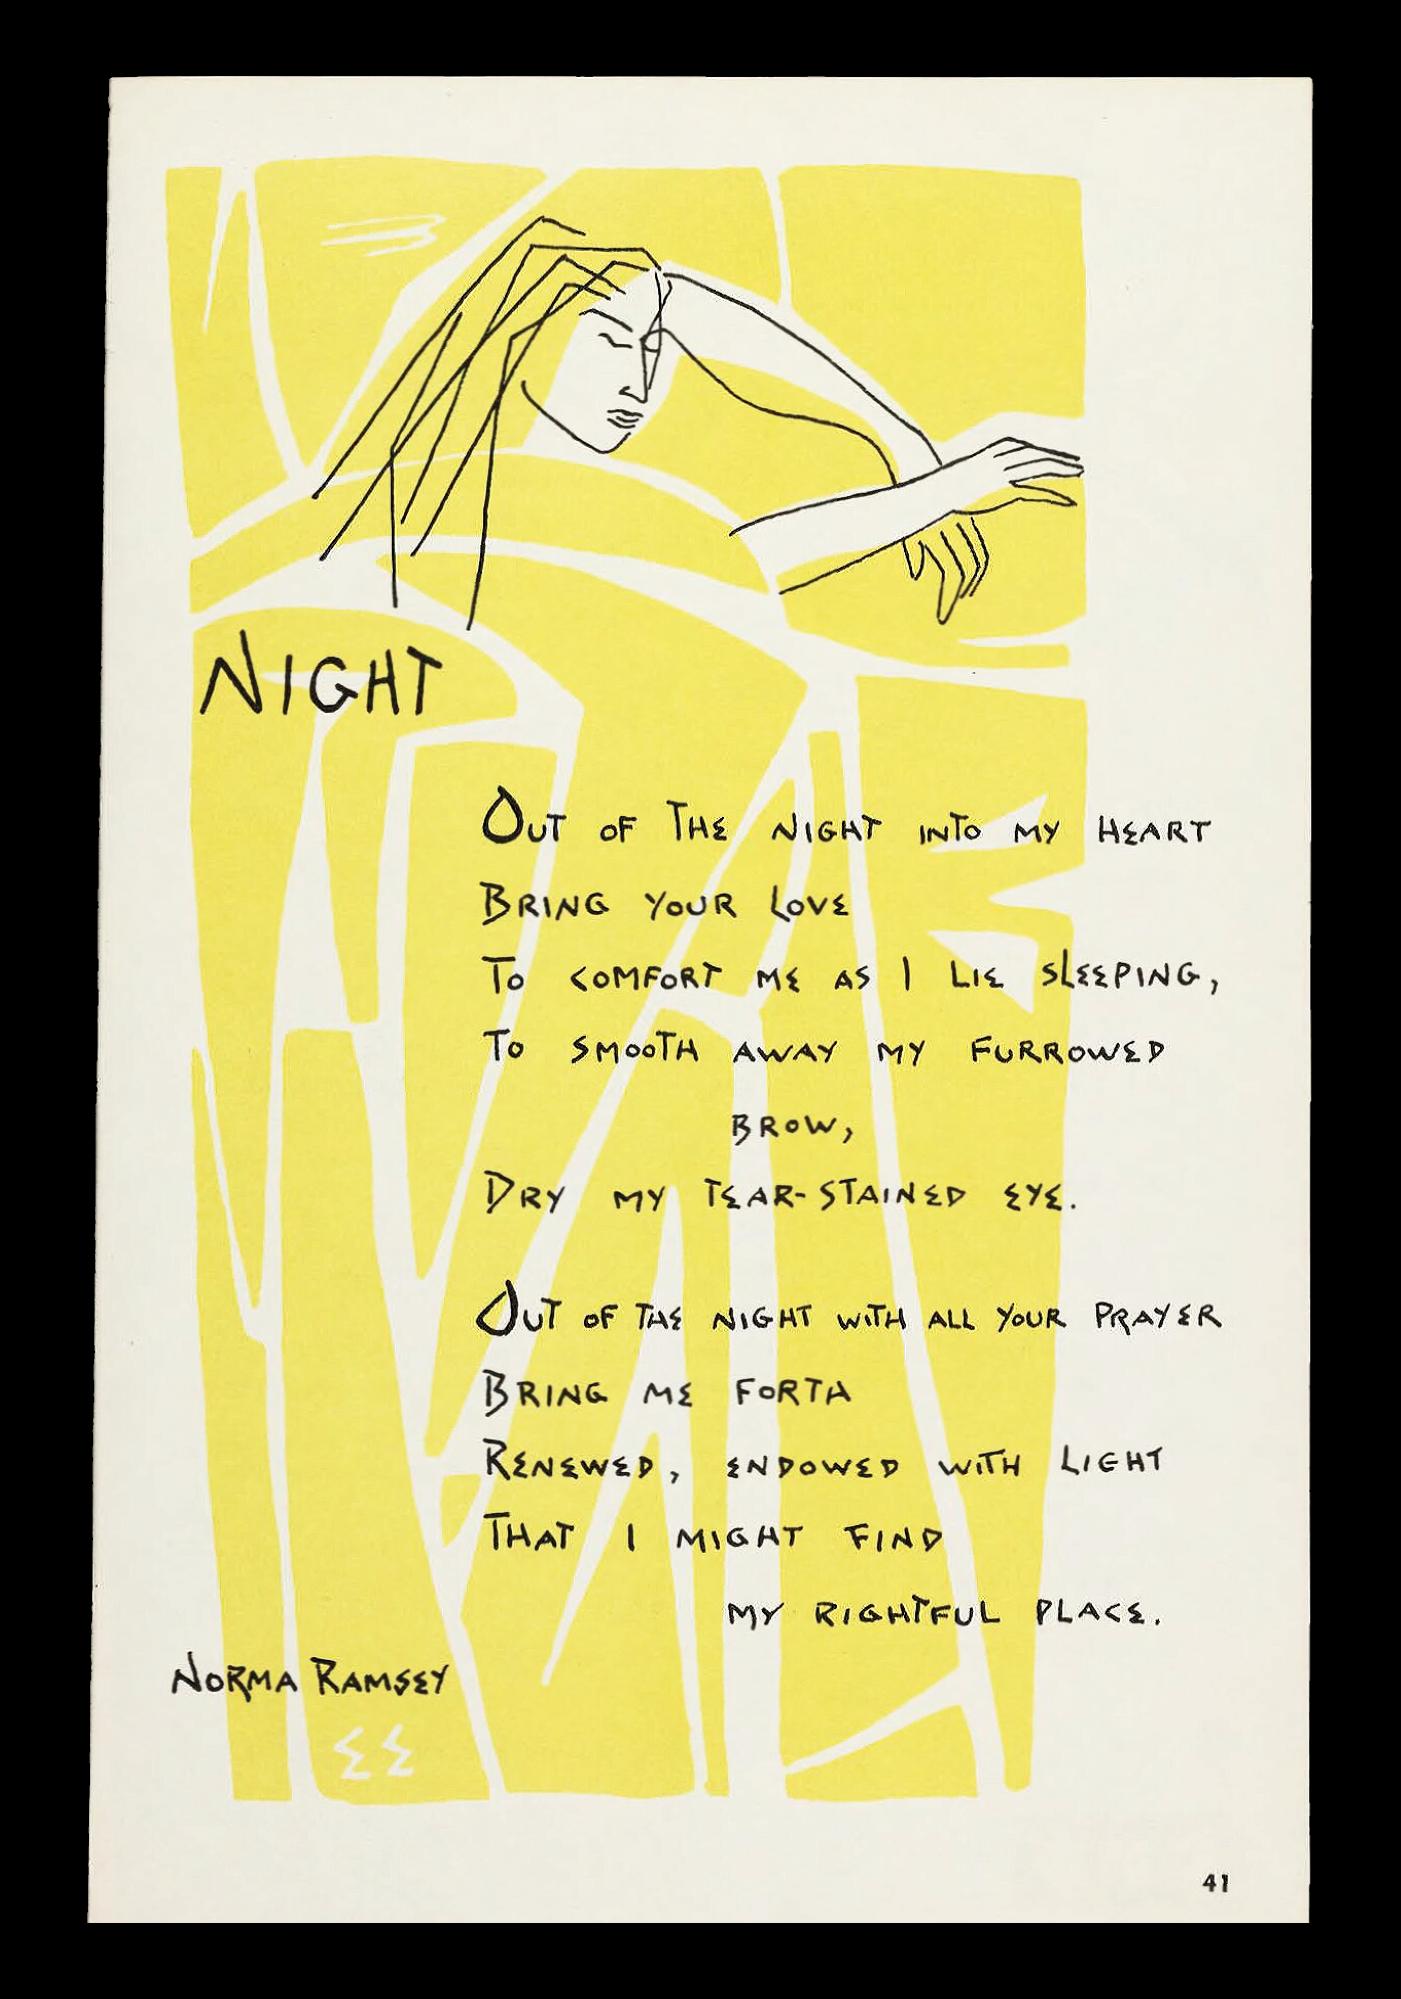 NIGHT
OUT OF THE NIGHT INTO MY HEART
BRING YOUR LOVE
TO COMFORT ME AS I LIE SLEEPING,
TO SMOOTH AWAY MY FURROWED
BROW,
DRY MY TEAR-STAINED EYE.
OUT OF THE NIGHT WITH ALL YOUR PRAYER
BRING ME FORTH
RENEWED, ENDOWED WITH LIGHT
THAT I MIGHT FIND
MY RIGHTFUL PLACE.
NORMA RAMSEY
EE
41